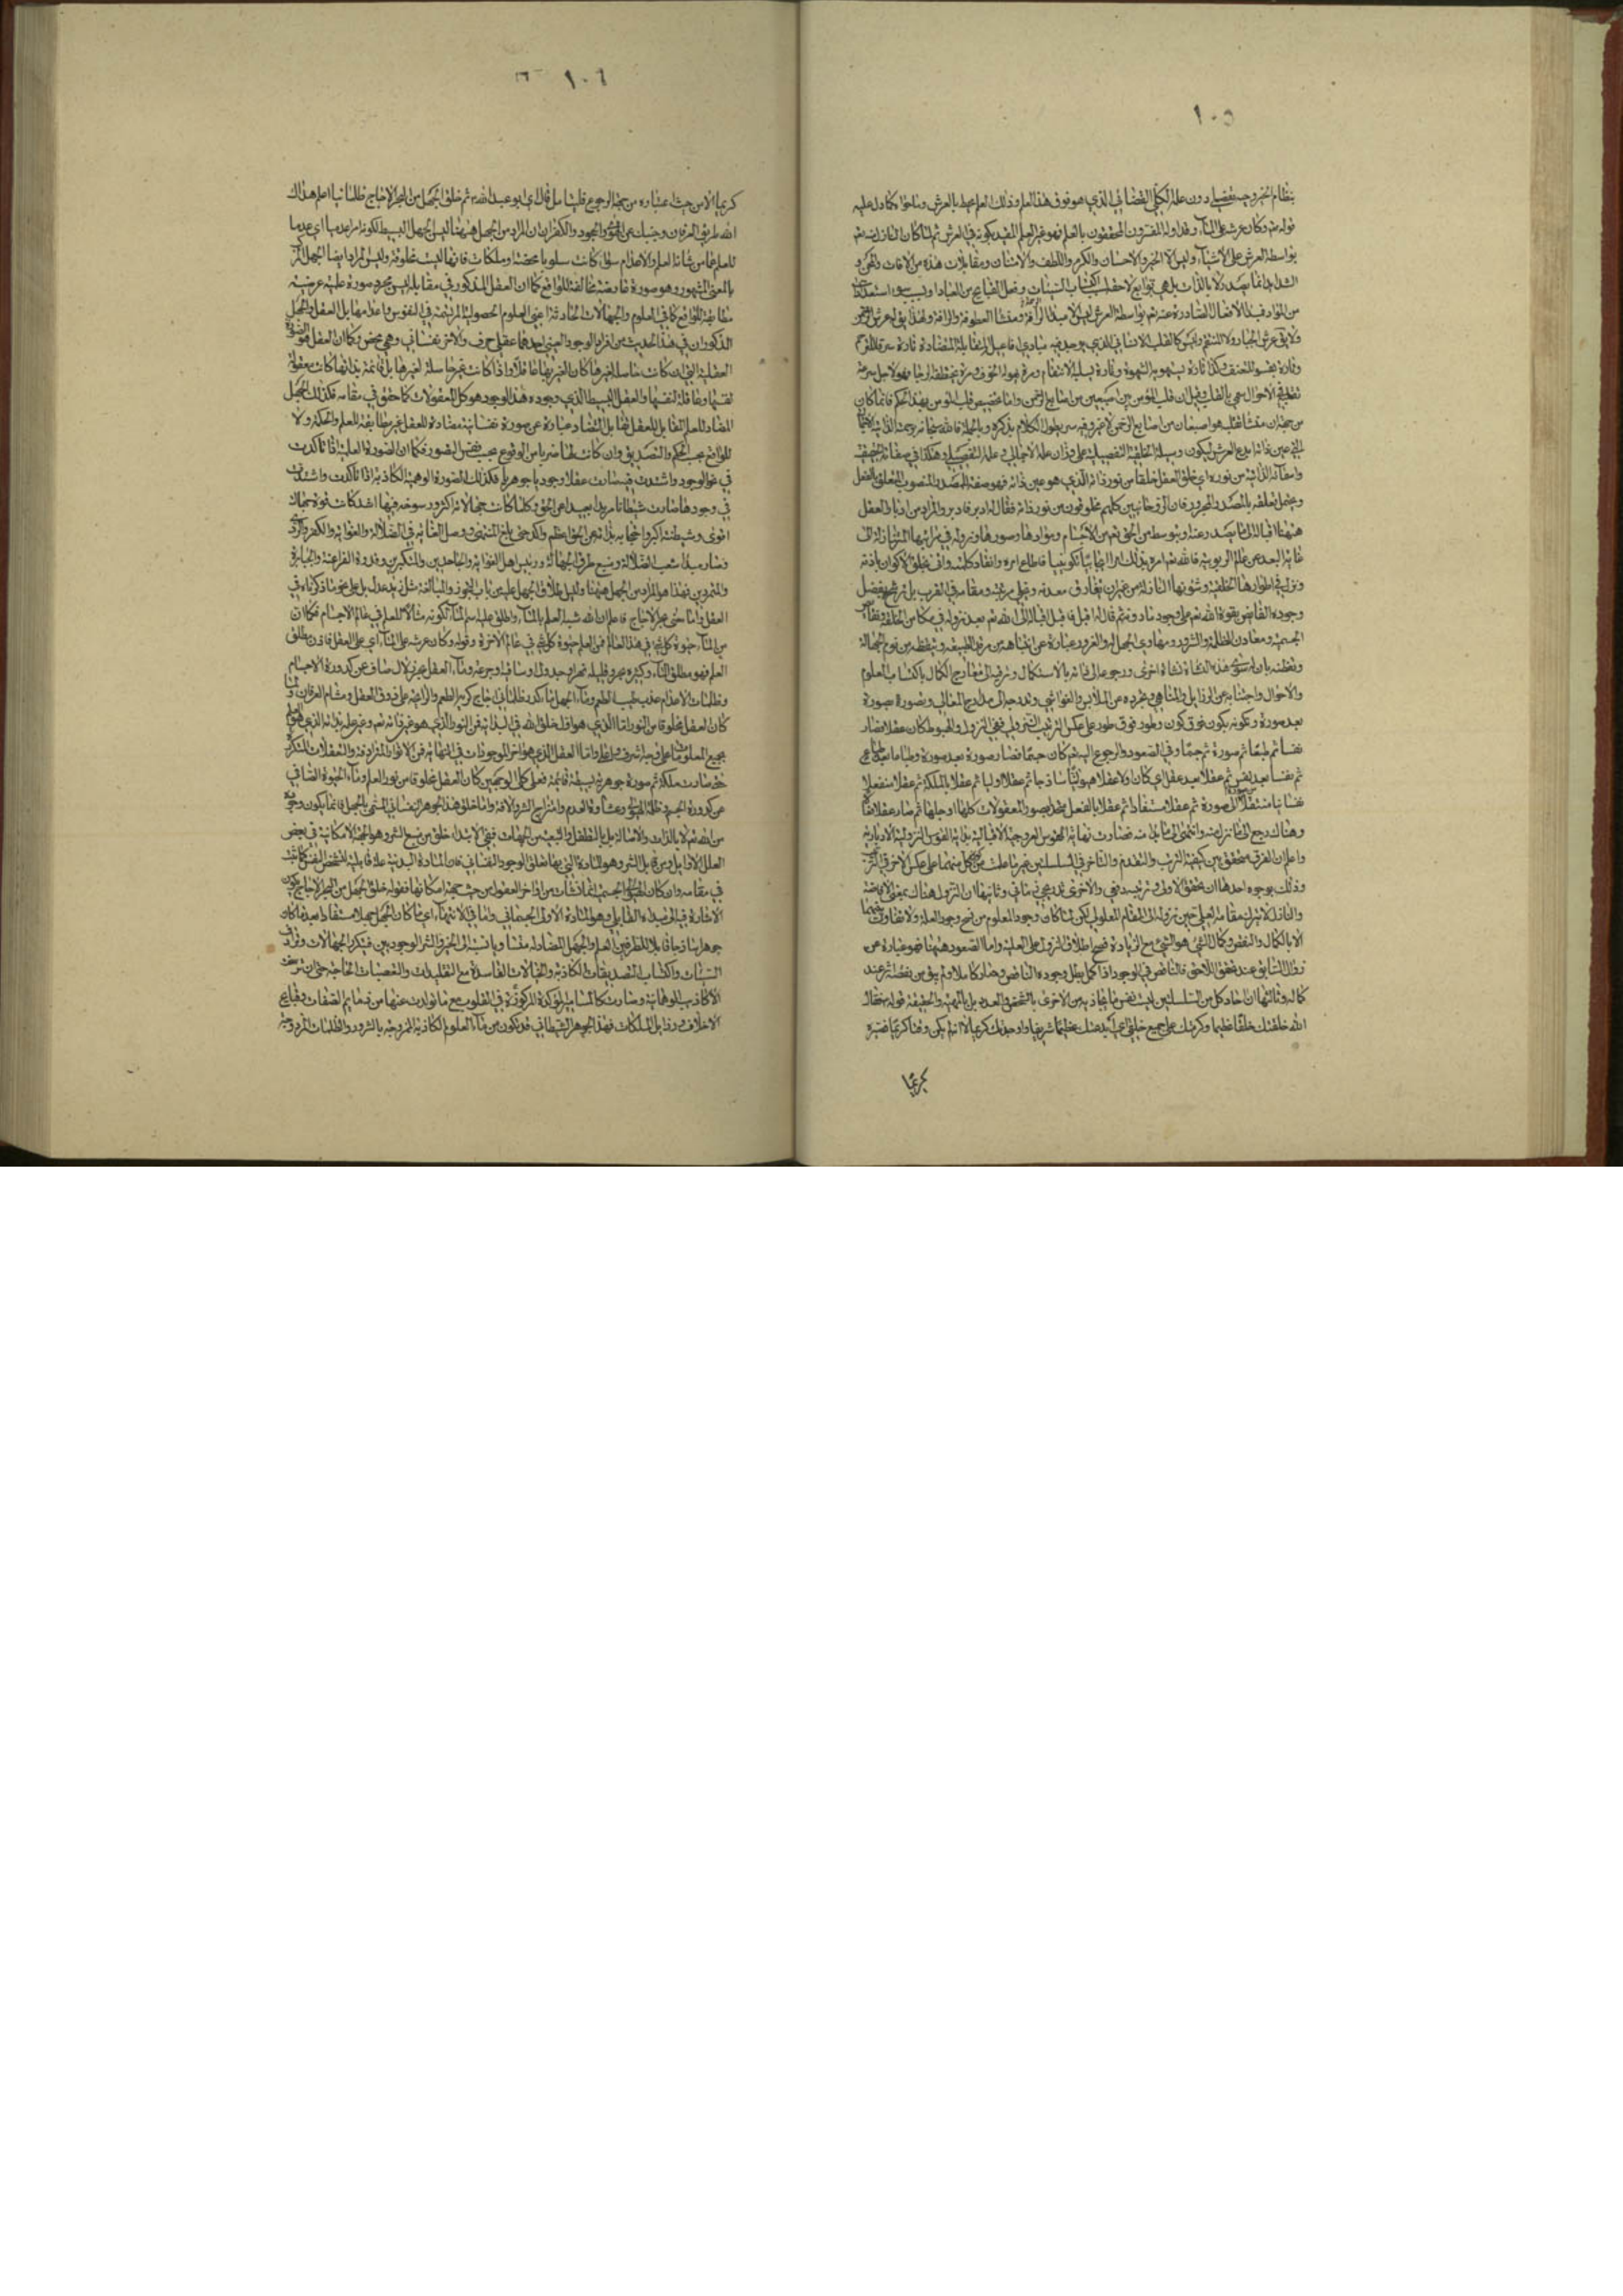 ١٠٥
بنظام الخير وجه تفصيلي دون علمه الكلي القضائي الذي هو فوق هذا العلم وذلك العلم محيط بالعرش وما حواه كما دل عليه
قوله تعالى وكان عرشه على الماء وقد اوله المفسرون المحققون بالعلم فهو غير العلم المقيد بكونه في العرش ثم لما كان
بواسطة العرش على الاشياء وليس الا الخير والاحسان والكرم واللطف والامتنان ومقابلات هذه من الافات والمحن و
الشدايد انما يصدر لا بالذات بل هي توابع لاحقة اكتساب السيئات وفعل القبايح من العباد او بسبب سوء استعدادات
من المواد فمبدء الافعال الصادرة عنه تعالى بواسطة العرش ليس الا مبدء الرأفة ومنشأ العطوفة والرأفة ولهذا
ولا يق عرش الجبار ولا المنتقم وليس كالقلب الانساني الذي يوجد فيه مبادي افاعيل المتقابلة المتضادة تارة
وتارة
تقلبه في الاحوال سمي بالقلب وقيل ان قلب المؤمن بين اصبعين من اصابع الرحمن واما تخصيص قلب المؤمن بهذا الحكم فانما كان
من جهة ان منشأ تقلبه هو اصبعان من اصابع الرحمن لا غير وفيه سر يطول الكلام بذكره وبالجملة فالله سبحانه
التي عين ذاته ابدع العرش ليكون وسيلة الخلقية التفصيلية على وزان علمه الاجمالي وعلمه التفصيلي وهكذا في صفاته الحقيقية
واضافاته الذاتية من نوره اي خلق العقل خلقا من نور ذاته الذي هو عين ذاته فهو صفة للمصدر المنصوب المتعلق بالفعل
ويحتمل تعلقه بالمصدر المجرور فان الروحانيين كلهم مخلوقون من نور ذاته فقال له ادبر فادبر والمراد من ادبار العقل
ههنا اقباله الى ما يصدر عنه او بتوسطه من الحق تعالى من الاجسام وموادها وصورها ونزوله في مراتبها المتنازلة الى
غاية البعد عن عالم الربوبية فالله تعالى امره بذلك امرا ايجابيا تكوينيا فاطاع امره وانقاد كلمته وافق بخلق الاكوان باذنه
ونزل في اطوارها الخلقية وشئونها النازلة من غير ان يفارق معدنه ويخلي مرتبته ومقامه في القرب بل ترشح بفضل
وجوده الفايض بقوة الله تعالى على وجود ما دونه ثم قال له اقبل فاقبل اقباله الى الله تعالى بعد نزوله في مكامن الخلقة ونقايص
الجسمية ومعادن الظلمة والشرور ومهاوي الجهل والغرور عبارة عن انتباهه من مرقد الطبيعة وتيقظه من نوم الجهالة
وتفطنه بان له سوى هذه النشأة نشأة اخرى ورجوعه الى ذاته بالاستكمال وترقيه الى معارج الكمال باكتساب العلوم
والاحوال واجتنابه عن الرذايل والمناهي وتجرده من الملابس والغواشي وتدرجه الى مدارج المعالي وتصوره بصورة
بعد صورة وتكونه بكون فوق كون وطور فوق طور على عكس الترتيب النزولي ففي النزول والهبوط كان عقلا فصار
نفسا ثم طبعا ثم صورة ثم جسما وفي الصعود والرجوع اليه تعالى كان جسما فصار صورة بعد صورة وطباعا بعد طباع
ثم نفسا بعد نفس ثم عقلا بعد عقل اي كان اولا عقلا هيولانيا ساذجا ثم عقلا اوليا ثم عقلا بالملكة ثم عقلا منفعلا
نفسانيا منتقلا من صورة الى صورة ثم عقلا مستفادا ثم عقلا بالفعل متحدا بصور المعقولات كلها او جلها ثم صار عقلا فعالا
وهناك رجع الى ما نزل منه وانتهى الى ما بدا منه فصارت نهاية القوس العروجية الاقبالية بداية القوس النزولية الادبارية
واعلم ان الفرق متحقق بين كيفية الترتيب والتقدم والتاخر في السلسلتين غير ما علمت من كون كل منهما على عكس الاخرى في الترتيب
وذلك بوجوه احدها ان يتحقق الاولى في ترتيب ابداعي والاخرى تدريجي زماني وثانيها ان النزول هناك بمعنى الافاضة
والنازل لا يترك مقامه العلي حين نزوله الى المقام المعلولي لكن لما كان وجود المعلوم من سنخ وجود العلة ولا تفاوت بينهما
الا بالكمال والنقص وكمال الشيء هو الشيء مع الزيادة فصح اطلاق النزول على العلية واما الصعود ههنا فهو عبارة عن
زوال السابق عند تحقق اللاحق فالناقص في الوجود اذا كمل بطل وجوده الناقص وصار كاملا ولم يبق من نقصانه اثر عند
كماله وثالثها ان احاد كل من السلسلتين ليست نفس ما يحاذيه من الاخرى بالشخص والعدد بل بالمهية والحقيقة قوله فقال
الله خلقتك خلقا عظيما وكرمتك على جميع خلقي اي ابدعتك عظيما شريفا واوجدتك كريما لا انه لم يكن وقتا كريما فصيره
كريما
١٠٦
كريما الا من حيث اعتباره من جهة الرجوع قليتامل قال اي ابو عبد الله ثم خلق الجهل من البحر الاجاج ظلمانيا اعلم هداك
الله طريق العرفان وجنبك عن الغي والجحود والكفران ان المراد من الجهل ههنا ليس الجهل البسيط لكونه امرا عدميا اي عدما
للعلم عما من شانه العلم والاعدام سواء كانت سلوبا محضة او ملكات فانها ليست مخلوقة وليس المراد ايضا الجهل المركب
بالمعنى المشهور وهو صورة عارضة مخالفة للواقع كما ان العقل المذكور في مقابله ليس مجرد صورة علمية عرضية
مطابقة للواقع كما في العلوم والجهالات الحادثة اعني العلوم الحصولية المرتسمة في النفوس واعدامها بل العقل والجهل
المذكوران في هذا الحديث من افراد الوجود العيني احدهما عقلي صرف والاخر نفساني وهمي محض وكما ان العقل هو الصورة
العقلية التي ان كانت حاصلة لغيرها كان الغير بها عاقلا واذا كانت غير حاصلة لغيرها بل قائمة بذاتها كانت معقولة
نفسها وعاقلة لنفسها والعقل البسيط الذي وجوده هذا الوجود هو كل المعقولات كما حقق في مقامه فكذلك الجهل
المضاد للعلم المقابل للعقل تقابل التضاد عبارة عن صورة نفسانية مضادة للعقل غير مطابقة للعلم والحكمة ولا
للواقع بحسب الحكم والتصديق وان كانت لها ضرب من الوقوع بحسب نفس التصور فكما ان الصورة العلمية اذا تاكدت
في نحو الوجود واشتدت صارت عقلا وجودا جوهريا فكذلك الصورة الوهمية الكاذبة اذا تاكدت واشتدت
في وجودها صارت شيطانا مريدا بعيدا عن الحق وكلما كانت جهالاته اكثر ورسوخه فيها اشد كانت قوة جهله
اقوى وشيطنته اكبر واحتجابه بذاته عن الحق اعظم واكد حتى بلغ المنتهى ووصل الغاية في الضلالة والغواية والكفر والردى
وصار مبدء شعب الضلالة ومنبع طرق الجهالة ورئيس اهل الغواية والجاحدين والمتكبرين وقدوة الفراعنة والجبابرة
والمتمردين فهذا هو المراد من الجهل ههنا وليس اطلاق الجهل عليه من باب التجوز والمبالغة مثل زيد عدل بل على نحو ما ذكرناه في
العقل واما معنى بحر الاجاج فاعلم ان الله شبه العلم بالماء واطلق عليه اسم الماء لكونه مثالا للعلم في عالم الاجسام فكما ان
من الماء حيوة كل شيء في هذا العالم فمن العلم حيوة كل شيء في عالم الاخرة وقوله وكان عرشه على الماء اي على العقل فاذن مطلق
العلم فهو مطلق الماء وكثيره بحر وقليله نهر او جدول او ساقية وجرعة وماء العقل بحر زلال صاف عن كدورة الاجسام
وظلمات الاعدام عذب طيب الطعم وماء الجهل ماء كدر ظلماني اجاج كريه الطعم والرائحة على ذوق العقل ومشام العرفان ولما
كان العقل مخلوقا من النور اما الذي هو اول خلق الله في البداية فمن النور الذي هو غير ذاته تعالى وغير علمه بذاته الذي هو العلم
بجميع المعلومات على وجه اشرف واعلى واما العقل الذي هو اخر الموجودات في النهاية فمن الانوار المترادفة والتعقلات المتكررة
حتى صارت ملكة ثم صورة جوهرية بسيطة قائمة فعلى كل الوجهين كان العقل مخلوقا من نور العلم وماء الحيوة الصافي
عن كدورة الجسم وظلمة الهيولى وغشاوة العدم وامتزاج الشر والافة واما خلق هذا الجوهر النفساني المسمى بالجهل فانما يكون وجوده
من الله تعالى لا بالذات والاصالة بل بالتطفل والتبعية من الجهات ففي الابتداء خلق من منبع الشر وهو الجهة الامكانية في بعض
العلل الاوايل ومن قابل الشر وهو المادة التي بها تعلق الوجود النفساني فان للمادة البدنية علاقة بالية للشخص النفس كما ثبت
في مقامه وان كان الهيولى الجسمية انما نشات من اواخر العقول من حيث جهة امكانها فقوله خلق الجهل من البحر الاجاج يكون
الاشارة فيه الى مبدئه القابلي وهو المادة الاولى الجسماني واما في الانتهاء اي ما كان الجهل جهلا مستفادا بعد ما كان
جوهرا ساذجا قابلا للطرفين العلم والجهل المضاد له منشأ وبا نسبة الى الخير والشر الوجوديين فبتكرر الجهالات وتراكم
السيئات واكتساب التصديقات الكاذبة والخيالات الفاسدة مع التقليدات والتعصبات الحاجبة حتى ترسخت
الاكاذيب الوهمانية وصارت كالمسامير المؤكدة المركوزة في القلوب مع ما تولدت عنها من ذمايم الصفات وقبايح
الاخلاق ورذايل الملكات فهذا الجوهر الشيطاني قد تكون من ماء العلوم الكاذبة الممزوجة بالشرور والظلمات المزدوجة